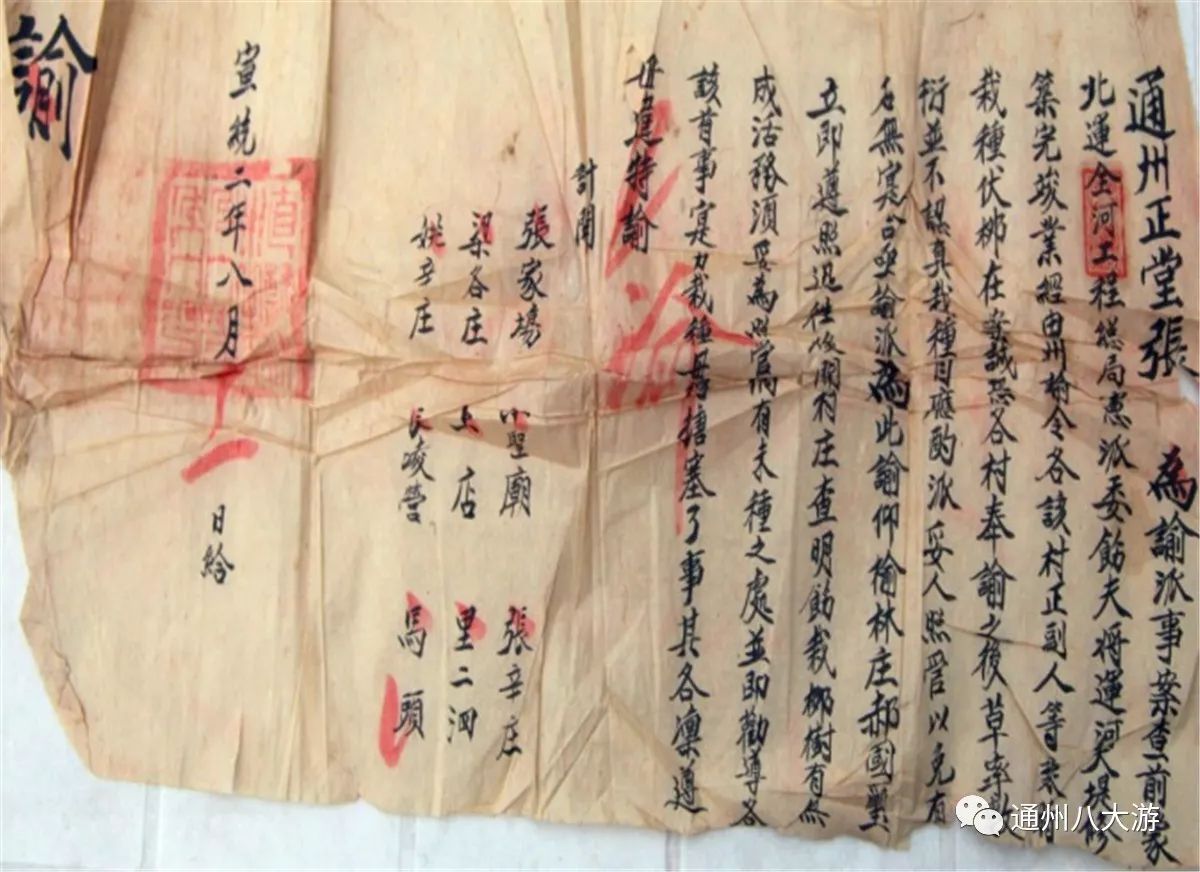 通州正堂張 為諭派事案查前蒙
北運全河工程總局憲派委飭夫將運河大堤修
築完竣業經由州諭令各該村正副人等
栽種伏柳在案誠恐各村奉諭之後草率
衍並不認真栽種自應酌派妥人照管以免有
名無實合亟諭派為此諭仰榆林庄郝國璽
立即遵照迅往後開村庄查明飭栽柳樹有無
成活務須妥為照管有未種之處並即勸導各
該首事寔力栽種毋得搪塞了事其各凛遵
毋違特諭
計開
張家塲 小聖廟 張辛庄
梁各庄 上店 里二泗
姚辛庄 長陵營 馬頭
宣統二年八月 日給
諭
通州八大游